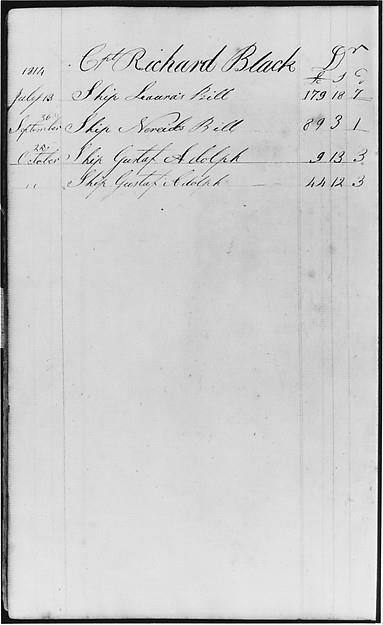 1814 Cpt Richard Black Dr
£ S D
July 13 Ship Laura's Bill 179 18 7
September 26 Ship Nereids Bill 89 3 1
October 25 Ship Gustaf Adolph 9 13 3
" Ship Gustaf Adolph 44 12 3